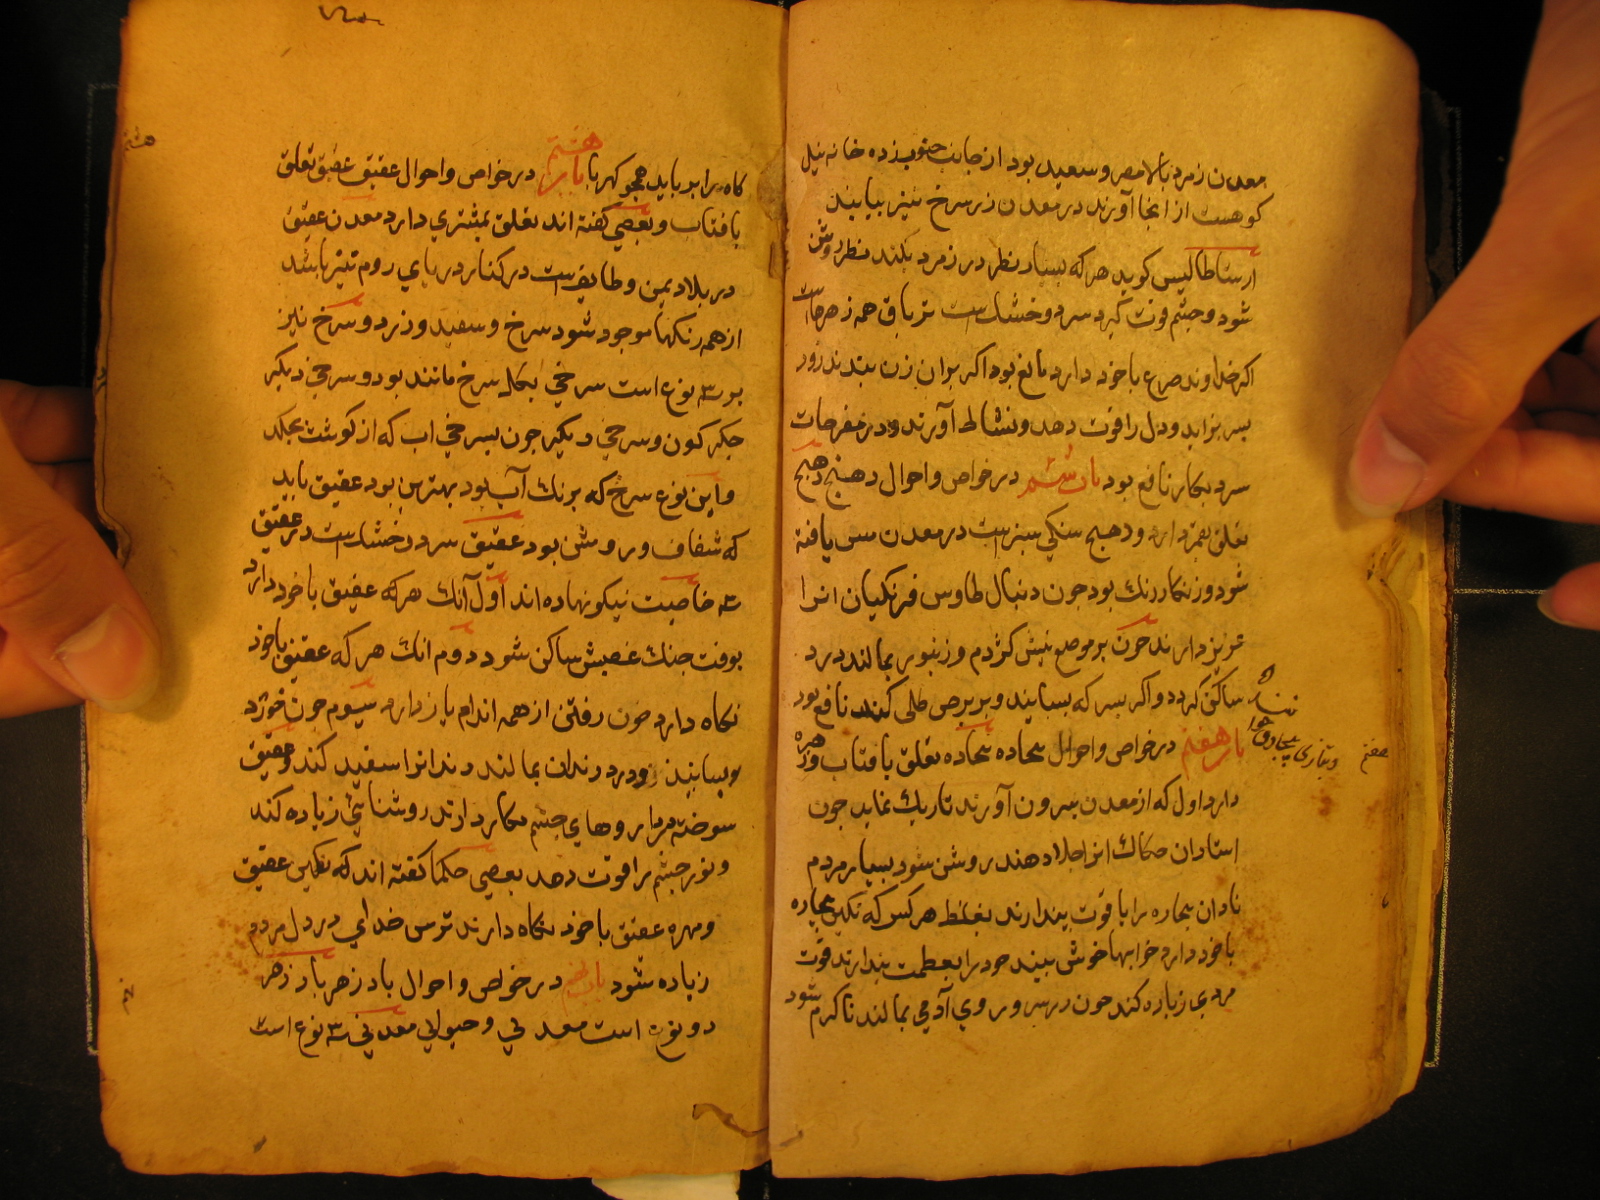 معدن زمرد بالا مصر و سعید بود از جانب جنوب زده خانه نیل
کوهست از انجا آورند در معدن زر سرخ نیز بیابند
ارسطاطالیس کوید هر که بسیار نظر در زمرد بکند نظر روشن
شود و چشم قوت کیرد سرد و خشك است تریاق همه زهرهاست
اکر خداوند صرع با خود دارد مانع بود اکر بران زن بندند زود
بسر بزاید و دل را قوت دهد و نشاط آورند و در مفرحات
سرد بکار نافع بود باب ششم در خواص و احوال دهنج دهنج
تعلق بقمر دارد و دهنج سنکی سبز است در معدن مس یافته
شود و زنکار رنك بود جون دنبال طاوس فرنکیان انرا
عزیز دارند جون بر موضع نیش کژدم و زنبور بمالند درد
ساکن کردد و اکر بسرکه بسایند و بر برص طلی کنند نافع بود
باب هفتم در خواص و احوال بیجاده بیجاده تعلق بافتاب و زهره
دارد اول که از معدن بیرون آورند تاریك نماید جون
استادان حکاك انرا جلا دهند روشن شود بسیار مردم
نادان بیجاده را یاقوت پندارند بغلط هر کس که نکین بیجاده
با خود دارد خوابها خوش بیند خود را بعظمت پندارند قوت
مردی زیاده کند جون در سر و روی آدمی بمالند تا کرم شود
هفتم
کاه را برباید همجو کهربا باب هشتم در خواص و احوال عقیق عقیق تعلق
بافتاب و بعضی کفته اند تعلق بمشتری دارد معدن عقیق
در بلاد یمن و طایف است در کنار دریای روم نیز باشد
از همه رنکها موجود شود سرخ و سفید و زرد و سرخ نیز
بر سه نوع است سرخی بکل سرخ مانند بود و سرخی دیکر
جکر کون و سرخی دیکر جون بسرخی اب که از کوشت بجکد
و این نوع سرخ که برنك آب بود بهترین بود عقیق باید
که شفاف و روشن بود عقیق سرد و خشك است در عقیق
سه خاصیت نیکو نهاده اند اول آنك هر که عقیق با خود دارد
بوقت جنك غضبش ساکن شود دوم انك هر که عقیق با خود
نکاه دارد خون رفتن از همه اندام باز دارد سیوم جون خورد
بسایند و در دندان بمالند دندانرا سفید کند و عقیق
سوخته در داروهای جشم بکار دارند روشنایی زیاده کند
و نور جشم را قوت دهد بعضی حکما کفته اند که نکین عقیق
و مهره عقیق با خود نکاه دارند ترس خدای در دل مردم
زیاده شود باب نهم در خواص و احوال بادزهر بادزهر
دو نوع است معدنی و حیوانی معدنی سه نوع است